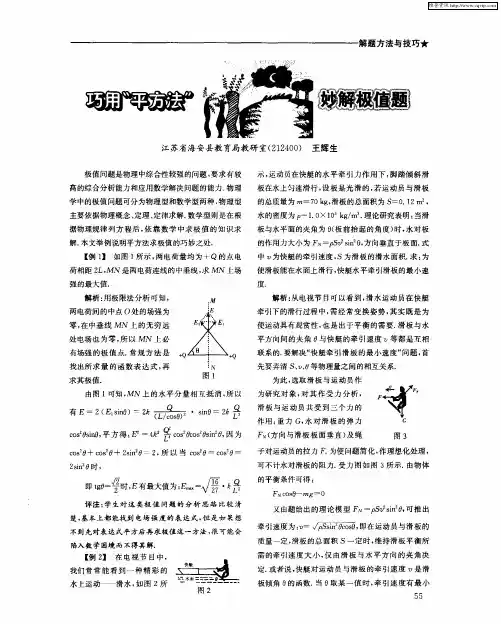 维普资讯 http://www.cqvip.com
解题方法与技巧★
巧用“平方法”
妙解极值题
江苏省海安县教育局教研室(212400) 王辉生
极值问题是物理中综合性较强的问题,要求有较
高的综合分析能力和应用数学解决问题的能力.物理
学中的极值问题可分为物理型和数学型两种.物理型
主要依据物理概念、定理、定律求解.数学型则是在根
据物理规律列方程后,依靠数学中求极值的知识求
解.本文举例说明平方法求极值的巧妙之处.
【例1】 如图1所示,两电荷量均为+Q的点电
荷相距2L,MN是两电荷连线的中垂线,求MN上场
强的最大值.
解析:用极限法分析可知,
两电荷间的中点O处的场强为
零,在中垂线MN上的无穷远
处电场也为零,所以MN上必
有场强的极值点.常规方法是
找出所求量的函数表达式,再
求其极值.
M
E
E₂ E₁
θ
+Q +Q
N
图1
由图1可知,MN上的水平分量相互抵消,所以
有E=2(E₁sinθ)=2k Q/(L/cosθ)² · sinθ=2k Q/L²
cos²θsinθ,平方得,E²=4k² Q²/L⁴ cos²θcos²θsin²θ,因为
cos²θ+cos²θ+2sin²θ=2,所以当cos²θ=cos²θ=
2sin²θ时,
即tgθ=√2/2时,E有最大值为:Emax=√(16/27) · k Q/L²
评注:学生对这类极值问题的分析思路比较清
楚,基本上都能找到电场强度的表达式,但是如果想
不到先对表达式平方后再求极值这一方法,很可能会
陷入数学困境而不得其解.
【例2】 在电视节目中,
我们常常能看到一种精彩的
水上运动——滑水,如图2所
快艇
水面
图2
示,运动员在快艇的水平牵引力作用下,脚踏倾斜滑
板在水上匀速滑行,设板是光滑的,若运动员与滑板
的总质量为m=70 kg,滑板的总面积为S=0.12 m²,
水的密度为ρ=1.0×10³ kg/m³.理论研究表明:当滑
板与水平面的夹角为θ(板前抬起的角度)时,水对板
的作用力大小为F_N=ρSv² sin²θ,方向垂直于板面.式
中v为快艇的牵引速度,S为滑板的滑水面积.求:为
使滑板能在水面上滑行,快艇水平牵引滑板的最小速
度.
解析:从电视节目可以看到,滑水运动员在快艇
牵引下的滑行过程中,需经常变换姿势,其实既是为
使运动具有观赏性,也是出于平衡的需要.滑板与水
平方向间的夹角θ与快艇的牵引速度v等都是互相
联系的.要解决“快艇牵引滑板的最小速度”问题,首
先要弄清S、v、θ等物理量之间的相互关系.
为此,选取滑板与运动员作
为研究对象,对其作受力分析,
滑板与运动员共受到三个力的
作用,重力G,水对滑板的弹力
F_N(方向与滑板板面垂直)及绳
F
G
图3
子对运动员的拉力F.为使问题简化,作理想化处理,
可不计水对滑板的阻力.受力图如图3所示.由物体
的平衡条件可得:
F_N cosθ−mg=0
又由题给出的理论模型F_N=ρSv² sin²θ,可推出
牵引速度为:v=√(mg/ρSsin²θcosθ),即在运动员与滑板的
质量一定,滑板的总面积S一定时,维持滑板平衡所
需的牵引速度大小,仅由滑板与水平方向的夹角决
定.或者说,快艇对运动员与滑板的牵引速度v是滑
板倾角θ的函数.当θ取某一值时,牵引速度有最小
55